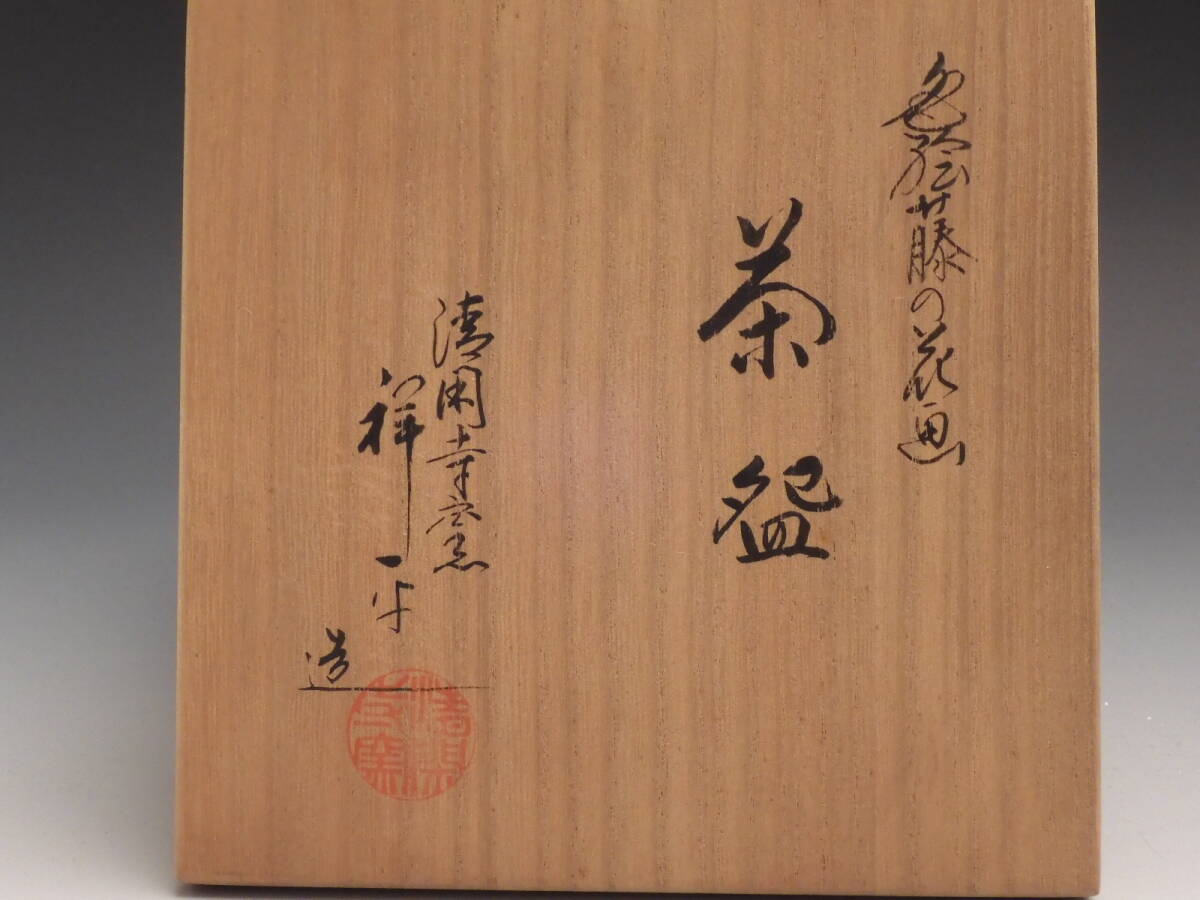 色絵藤の花画
茶盌
清閑寺窯
祥平
造
清閑寺窯